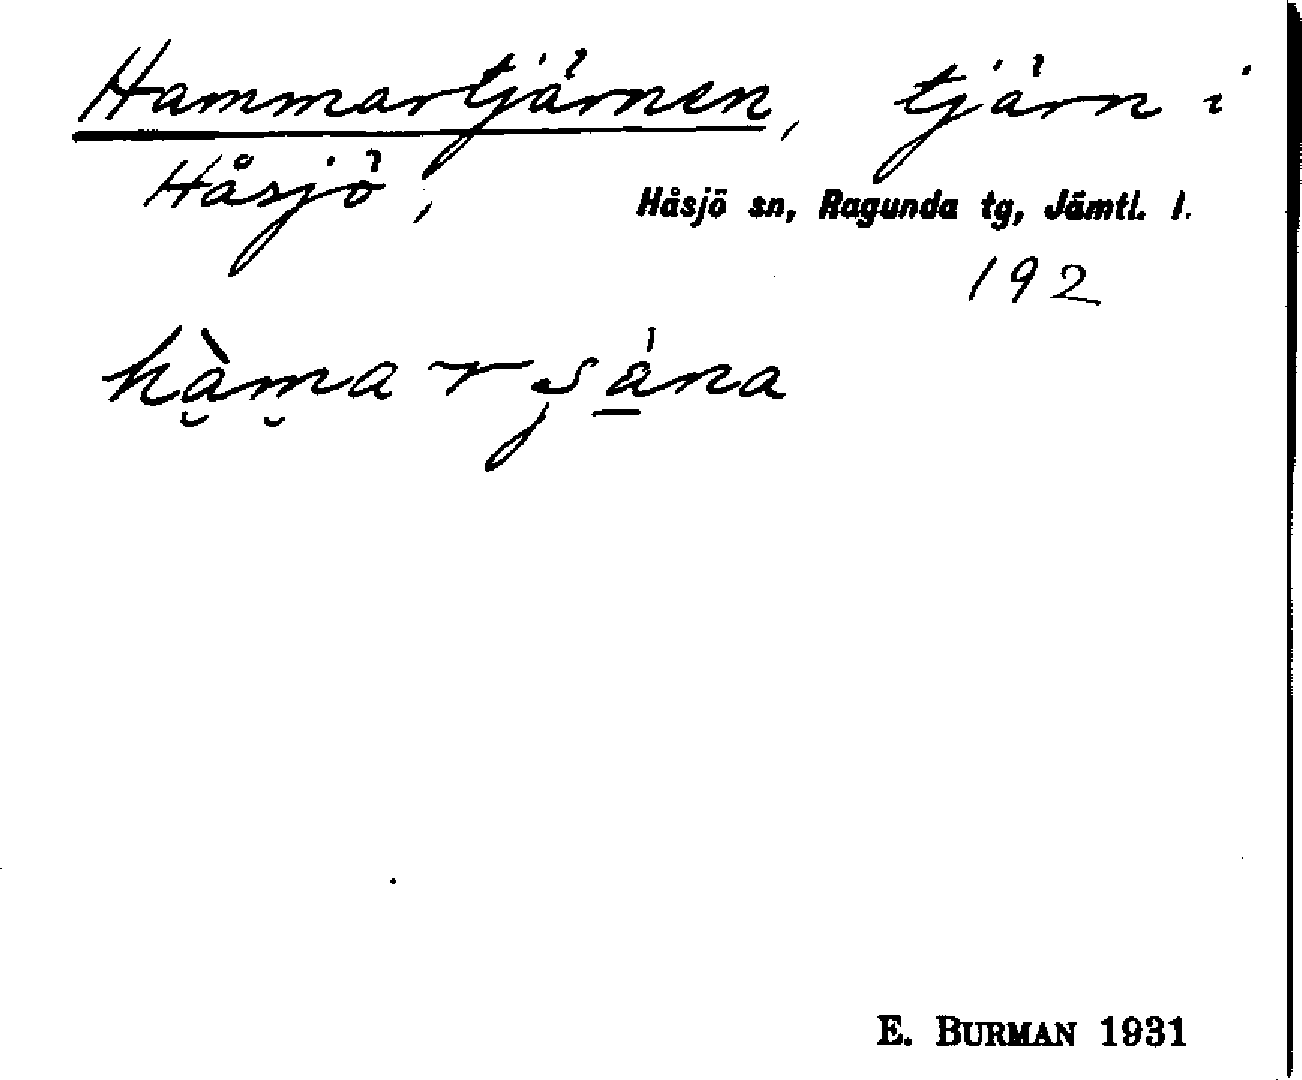 Hammartjärnen, tjärn i
Håsjö,
Håsjö sn, Ragunda tg, Jämtl. l.
192
hàmarşána
E. BURMAN 1931